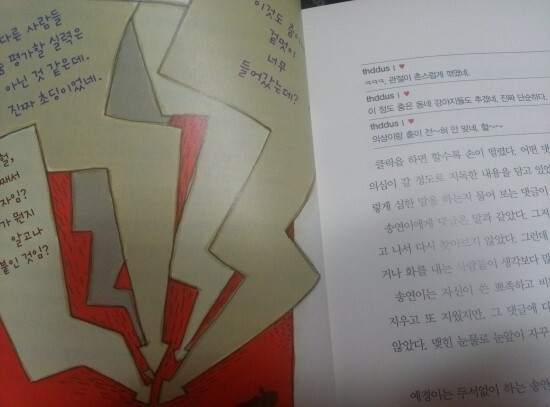 다른 사람들
평가할 실력은
아닌 것 같은데.
진짜 초딩이었네.
이것도
겉멋이
너무
들어갔는데?
헐,
자임?
가 뭔지
알고나
붙인 것임?
thddus | ♥
ㅋㅋㅋ. 관절이 촌스럽게 꺾였네.
thddus | ♥
이 정도 춤은 동네 강아지들도 추겠네. 진짜 단순하다.
thddus | ♥
의상이랑 춤이 전~혀 안 맞네. 헐~~
클릭을 하면 할수록 손이 떨렸다. 어떤 댓
의심이 갈 정도로 지독한 내용을 담고 있었
렇게 심한 말을 하는지 물어 보는 댓글이
송연이에게 댓글은 말과 같았다. 그저
고 나서 다시 찾아보지 않았다. 그런데
거나 화를 내는 사람들이 생각보다 많
송연이는 자신이 쓴 뾰족하고 비
지우고 또 지웠지만, 그 댓글에 다
않았다. 맺힌 눈물로 눈앞이 자꾸
예정이는 두서없이 하는 송연